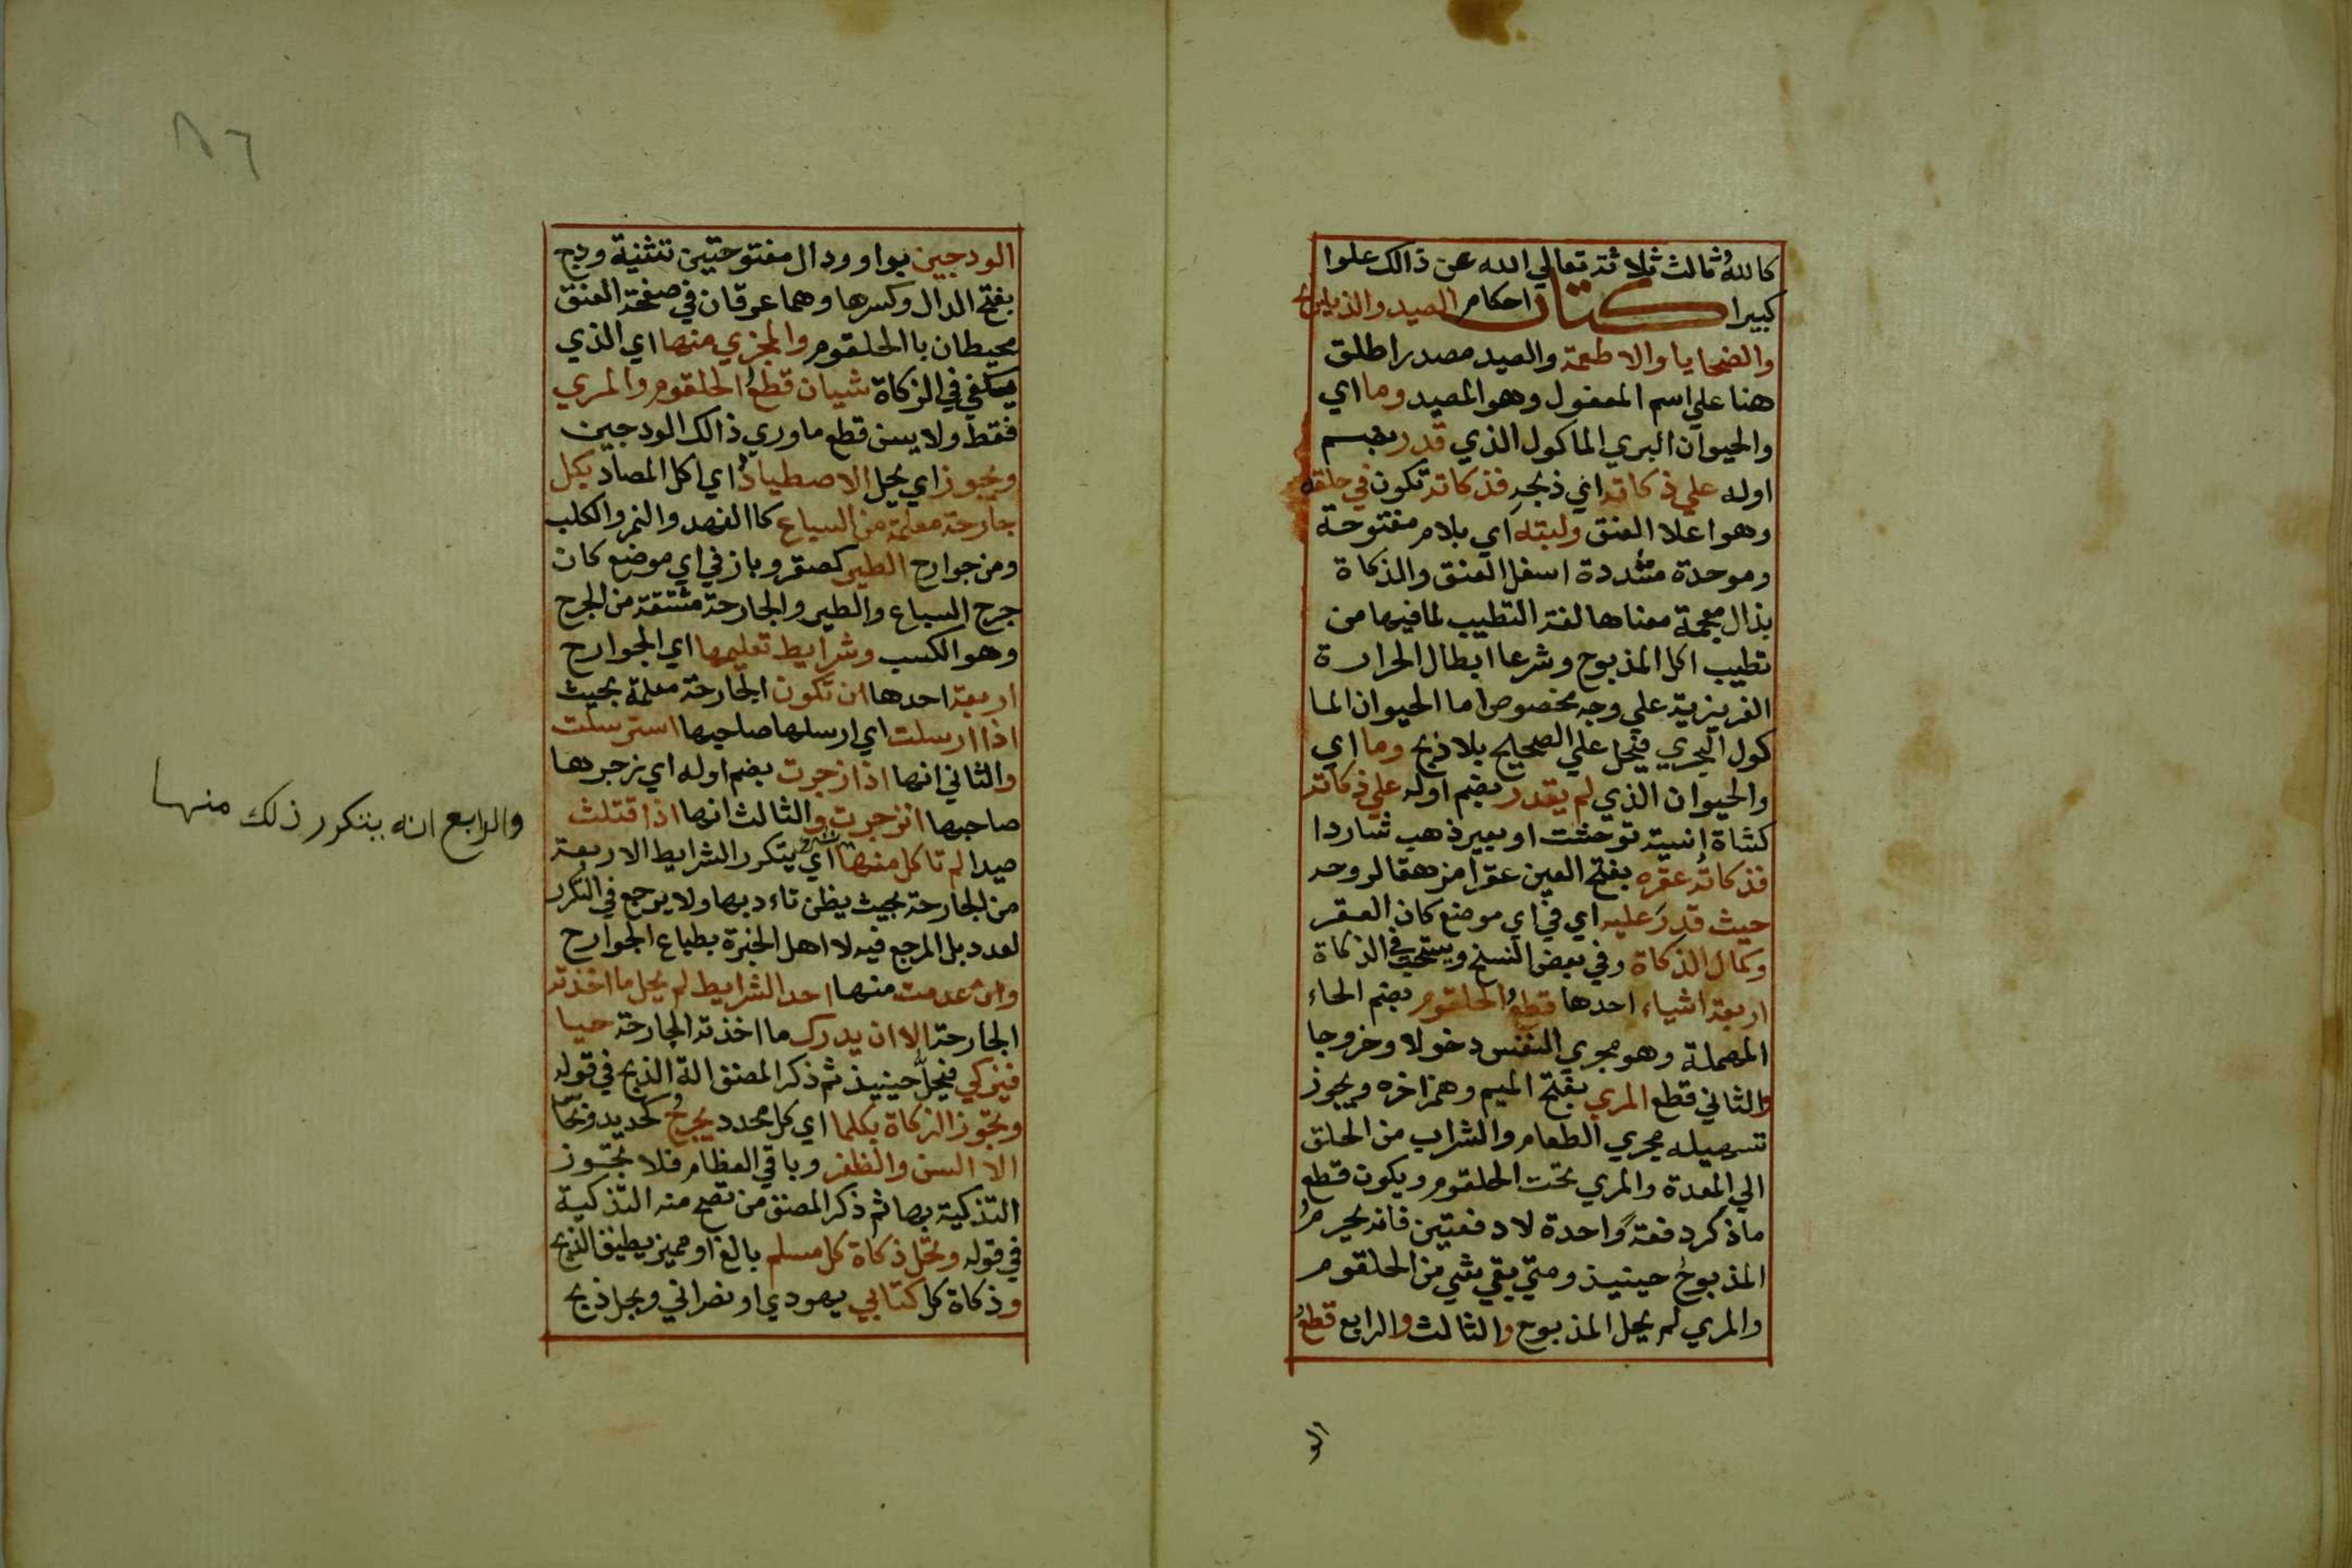 كالله ثالث ثلاثة تعالي الله عن ذالك علوا
كبيرا كتاب احكام الصيد والذبايح
والضحايا والاطعمة والصيد مصدر اطلق
هنا علي اسم المفعول وهو المصيد وما اي
والحيوان البري الماكول الذي قدر بضم
اوله علي ذكاته اي ذبحه فذكاته تكون في حلقه
وهو اعلا العنق ولبته اي بلام مفتوحة
وموحدة مشددة اسفل العنق والذكاة
بذال معجمة معناها لغة التطيب لما فيها من
تطيب اكل المذبوح وشرعا ابطال الحرارة
الغريزية علي وجه مخصوص اما الحيوان الما
كول البحري فيحل علي الصحيح بلا ذبح وما اي
والحيوان الذي لم يقدر بضم اوله علي ذكاته
كشاة انسية توحشت او بعير ذهب شاردا
فذكاته عقره بفتح العين عقرا مزهقا لروحه
حيث قدر عليه اي في اي موضع كان العقر
وكمال الذكاة وفي بعض النسخ ويستحب في الذكاة
اربعة اشياء احدها قطع الحلقوم بضم الحاء
المهملة وهو مجري النفس دخولا وخروجا
والثاني قطع المري بفتح الميم وهمز اخره ويجوز
تسهيله مجري الطعام والشراب من الحلق
الي المعدة والمري تحت الحلقوم ويكون قطع
ماذكر دفعة واحدة لا دفعتين فانه يحرم
المذبوح حينيذ ومتي بقي شي من الحلقوم
والمري لم يحل المذبوح والثالث والرابع قطع
الو
٨٦
الودجين بواو ودال مفتوحتين تثنية ودج
بفتح الدال وكسرها وهما عرقان في صفحة العنق
محيطان باالحلقوم والمجزي منها اي الذي
يكفي في الزكاة شيان قطع الحلقوم والمري
فقط ولا يسن قطع ماوري ذالك الودجين
ويجوز اي يحل الاصطياد اي اكل المصاد بكل
جارحة معلمة من السباع كاالفهد والنمر والكلب
ومن جوارح الطير كصقر وباز في اي موضع كان
جرح السباع والطير والجارحة مشتقة من الجرح
وهو الكسب وشرايط تعليمها اي الجوارح
اربعة احدها ان تكون الجارحة معلمة بحيث
اذا ارسلت اي ارسلها صاحبها استرسلت
والثاني انها اذا زجرت بضم اوله اي زجرها
صاحبها انزجرت والثالث انها اذا قتلت
صيدا لم تاكل منها اي يتكرر الشرايط الاربعة
والرابع انه يتكرر ذلك منها
من الجارحة بحيث يظن تاءدبها ولا يرجع في التكرر
لعدد بل المرجع فيه لا اهل الخبرة بطباع الجوارح
وان عدمت منها احد الشرايط لم يحل ما اخذته
الجارحة الا ان يدرك ما اخذته الجارحة حيا
فيزكي فيحل حينيذ ثم ذكر المصنف الة الذبح في قوله
وتجوز الزكاة بكلما اي كل محدد يجرح كحديد ونحاس
الا السن والظفر وباقي العظام فلا تجوز
التذكية بها ثم ذكر المصنف من تصح منه التذكية
في قوله وتحل ذكاة كل مسلم بالغ او مميز يطيق الذبح
وذكاة كل كتابي يهودي او نصراني ويحل ذبح